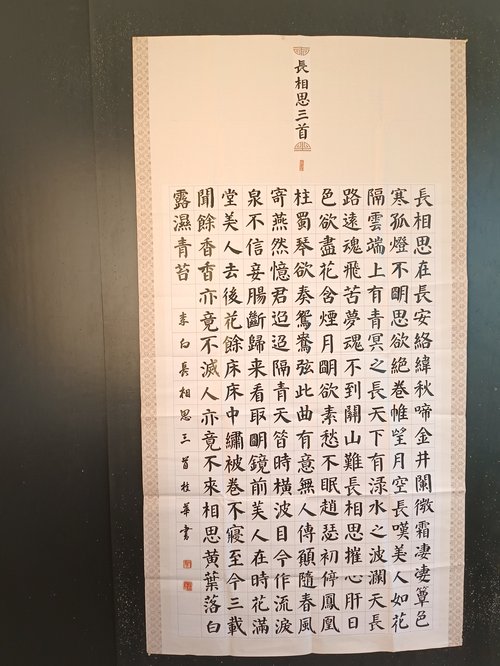 長相思三首
長相思在長安絡緯秋啼金井闌微霜凄凄簟色
寒孤燈不明思欲絕卷帷望月空長嘆美人如花
隔雲端上有青冥之長天下有淥水之波瀾天長
路遠魂飛苦夢魂不到關山難長相思摧心肝日
色欲盡花含煙月明欲素愁不眠趙瑟初停鳳凰
柱蜀琴欲奏鴛鴦弦此曲有意無人傳願隨春風
寄燕然憶君迢迢隔青天昔時橫波目今作流淚
泉不信妾腸斷歸來看取明鏡前美人在時花滿
堂美人去後花餘床床中繡被卷不寢至今三載
聞餘香香亦竟不滅人亦竟不來相思黃葉落白
露濕青苔
李白長相思三首桂華書